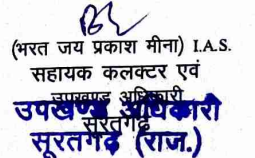 (भरत जय प्रकाश मीना) I.A.S.
सहायक कलक्टर एवं
उपखण्ड अधिकारी
सूरतगढ़
उपखण्ड अधिकारी
सूरतगढ़ (राज.)